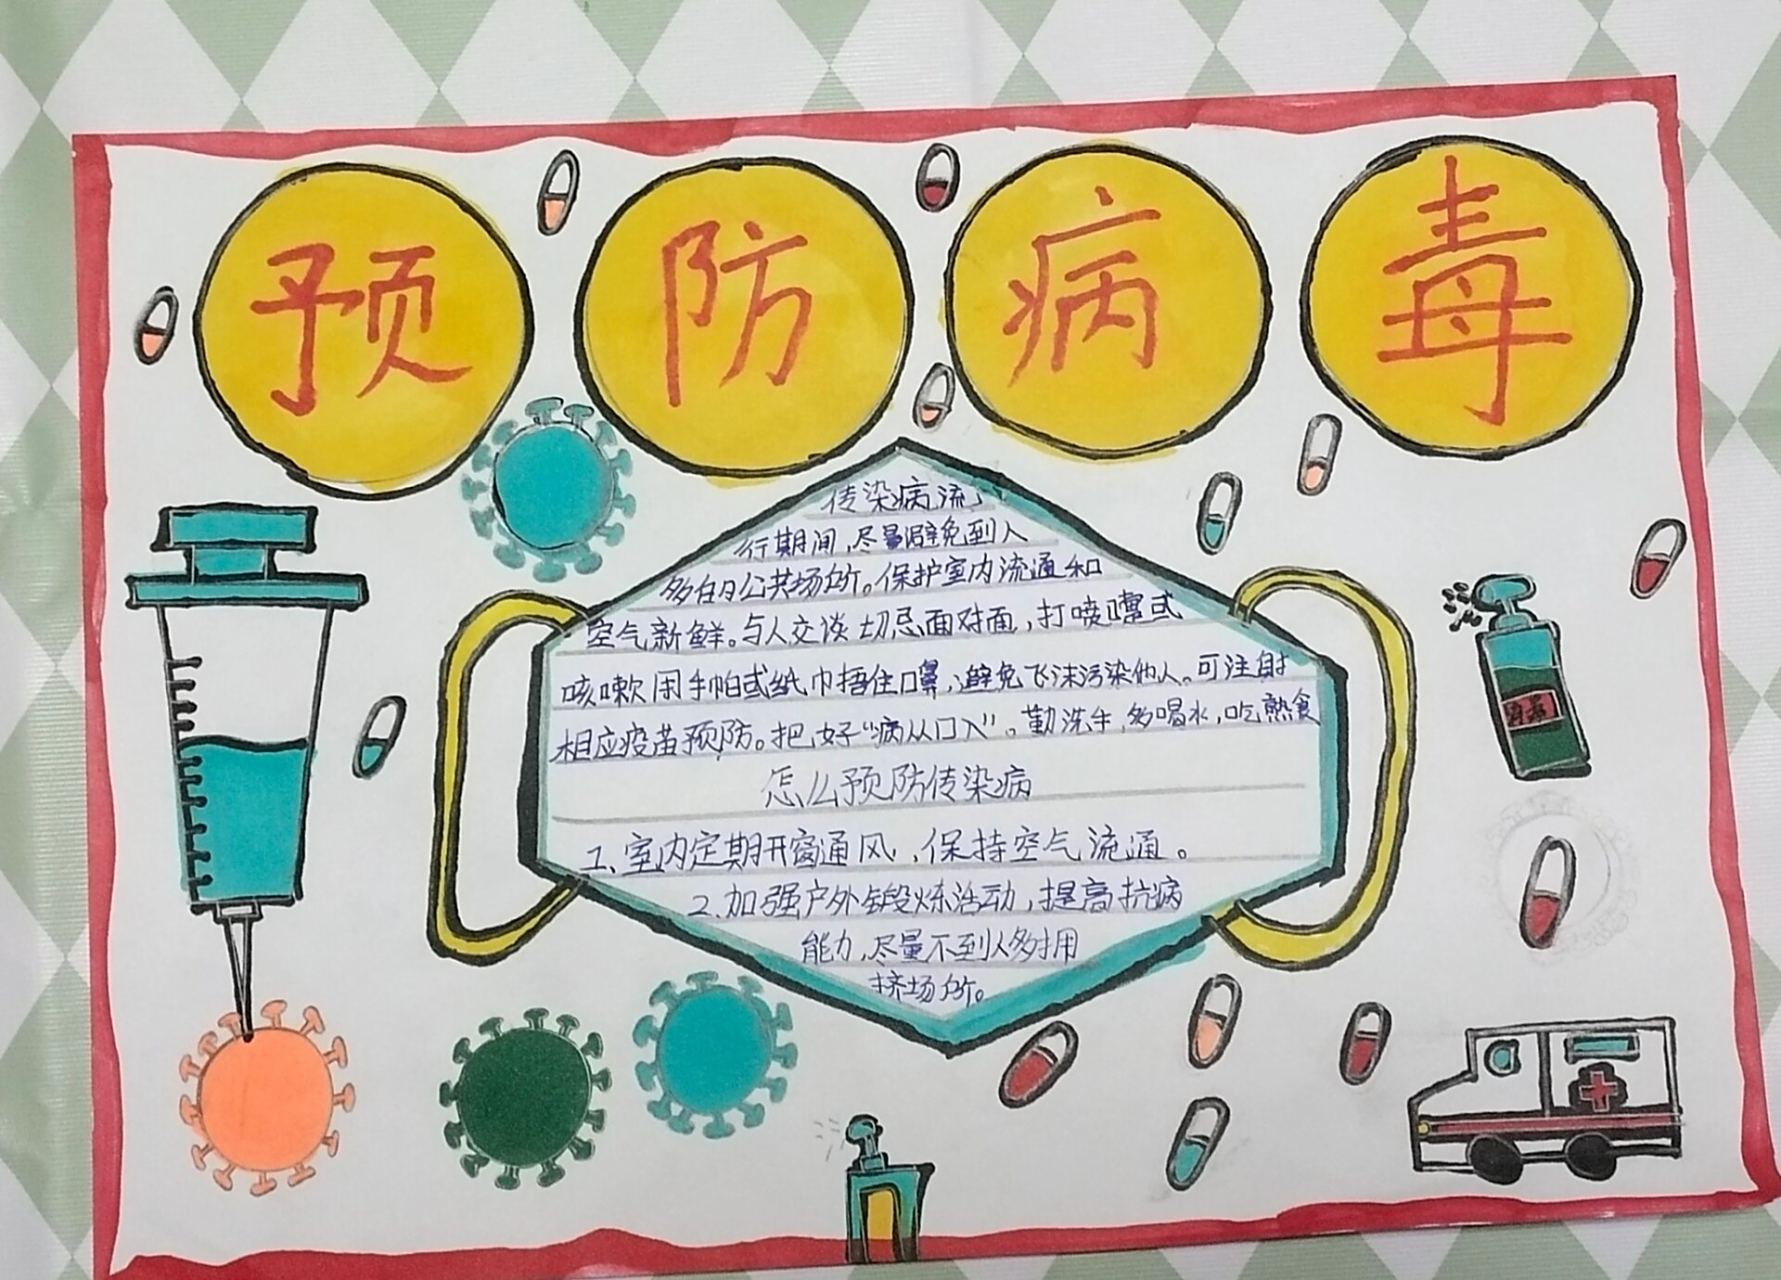 预防病毒
传染病流
行期间,尽量避免到人
多的公共场所。保护室内流通和
空气新鲜。与人交谈切忌面对面,打喷嚏或
咳嗽用手帕或纸巾捂住口鼻,避免飞沫污染他人。可注射
相应疫苗预防。把好“病从口入”。勤洗手,多喝水,吃熟食
怎么预防传染病
1、室内定期开窗通风,保持空气流通。
2、加强户外锻炼活动,提高抗病
能力,尽量不到人多拥
挤场所。
消毒